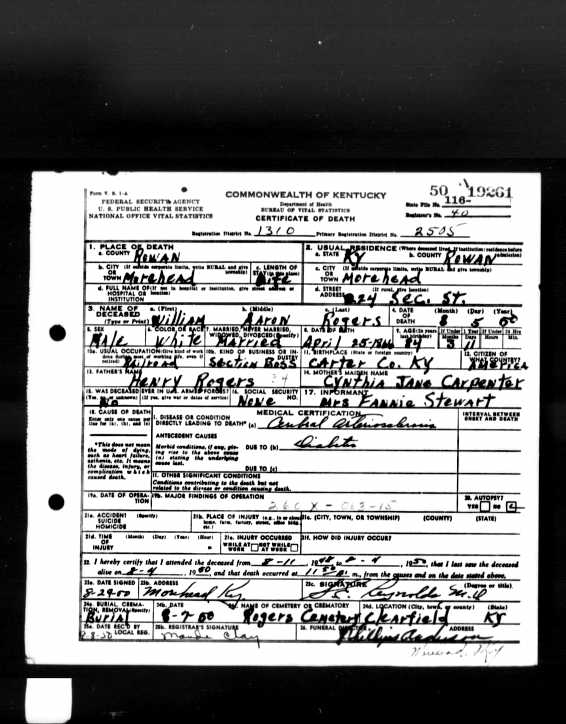 Form V. S. 1-A
FEDERAL SECURITY AGENCY
U. S. PUBLIC HEALTH SERVICE
NATIONAL OFFICE VITAL STATISTICS
COMMONWEALTH OF KENTUCKY
Department of Health
BUREAU OF VITAL STATISTICS
CERTIFICATE OF DEATH
50 19261
State File No. 116-
Registrar's No. 40
Registration District No. 1310 Primary Registration District No. 2505
1. PLACE OF DEATH
a. COUNTY ROWAN
2. USUAL RESIDENCE (Where deceased lived. If institution: residence before admission)
a. STATE KY b. COUNTY ROWAN
b. CITY (If outside corporate limits, write RURAL and give township) OR TOWN Morehead
c. LENGTH OF STAY (in this place) Life
c. CITY (If outside corporate limits, write RURAL and give township) OR TOWN Morehead
d. FULL NAME OF (If not in hospital or institution, give street address or location) HOSPITAL OR INSTITUTION
d. STREET ADDRESS (If rural, give location) 224 Sec. St.
3. NAME OF DECEASED (Type or Print)
a. (First) William b. (Middle) Aaron c. (Last) Rogers
4. DATE OF DEATH (Month) (Day) (Year) 8 5 50
5. SEX Male
6. COLOR OR RACE White
7. MARRIED, NEVER MARRIED, WIDOWED, DIVORCED (Specify) Married
8. DATE OF BIRTH April 25-1866
9. AGE (In years last birthday) 84
If Under 1 Year Months 3 Days 11
If Under 24 Hrs Hours Min.
10a. USUAL OCCUPATION (Give kind of work done during most of working life, even if retired) Railroad
10b. KIND OF BUSINESS OR INDUSTRY Section Boss
11. BIRTHPLACE (State or foreign country) Carter Co. KY
12. CITIZEN OF WHAT COUNTRY? America
13. FATHER'S NAME Henry Rogers
14. MOTHER'S MAIDEN NAME Cynthia Jane Carpenter
15. WAS DECEASED EVER IN U.S. ARMED FORCES? (Yes, no, or unknown) (If yes, give war or dates of service) No
16. SOCIAL SECURITY NO. None
17. INFORMANT Mrs Fannie Stewart
18. CAUSE OF DEATH
Enter only one cause per line for (a), (b), and (c)
MEDICAL CERTIFICATION
INTERVAL BETWEEN ONSET AND DEATH
I. DISEASE OR CONDITION DIRECTLY LEADING TO DEATH* (a)
*This does not mean the mode of dying, such as heart failure, asthenia, etc. It means the disease, injury, or complication which caused death.
ANTECEDENT CAUSES
Morbid conditions, if any, giving rise to the above cause (a) stating the underlying cause last.
DUE TO (b) Diabetes
DUE TO (c)
II. OTHER SIGNIFICANT CONDITIONS
Conditions contributing to the death but not related to the disease or condition causing death.
19a. DATE OF OPERATION
19b. MAJOR FINDINGS OF OPERATION
20. AUTOPSY? YES NO
21a. ACCIDENT SUICIDE HOMICIDE (Specify)
21b. PLACE OF INJURY (e.g., in or about home, farm, factory, street, office bldg., etc.)
21c. (CITY, TOWN, OR TOWNSHIP) (COUNTY) (STATE)
21d. TIME OF INJURY (Month) (Day) (Year) (Hour)
21e. INJURY OCCURRED WHILE AT WORK NOT WHILE AT WORK
21f. HOW DID INJURY OCCUR?
22. I hereby certify that I attended the deceased from 8-11, 1948 to 8-4, 1950, that I last saw the deceased
alive on 8-4, 1950, and that death occurred at m., from the causes and on the date stated above.
23a. DATE SIGNED 8-29-50
23b. ADDRESS Morehead Ky
23c. SIGNATURE Reynolds M.D (Degree or title)
24a. BURIAL, CREMATION, REMOVAL (Specify) Burial
24b. DATE 8-7-50
24c. NAME OF CEMETERY OR CREMATORY Rogers Cemetery
24d. LOCATION (City, town, or county) (State) Clearfield KY
25a. DATE REC'D BY LOCAL REG.
25b. REGISTRAR'S SIGNATURE Maude Clay
26. FUNERAL DIRECTOR ADDRESS